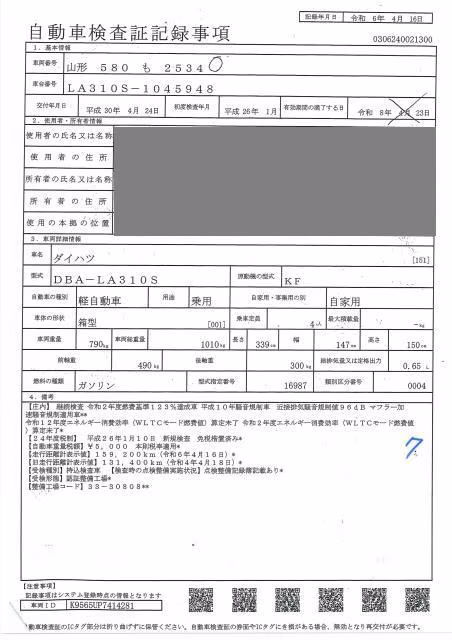 記録年月日 令和 6年 4月 16日
自動車検査証記録事項
0306240021300
1．基本情報
車両番号 山形 580 も 2534
車台番号 LA310S－1045948
交付年月日 平成 30年 4月 24日 初度検査年月 平成 26年 1月 有効期間の満了する日 令和 8年 4月 23日
2．使用者・所有者情報
使用者の氏名又は名称
使用者の住所
所有者の氏名又は名称
所有者の住所
使用の本拠の位置
3．車両詳細情報
車名 ダイハツ [151]
型式 DBA－LA310S 原動機の型式 KF
自動車の種別 軽自動車 用途 乗用 自家用・事業用の別 自家用
車体の形状 箱型 [001] 乗車定員 4人 最大積載量 －kg
車両重量 790kg 車両総重量 1010kg 長さ 339cm 幅 147cm 高さ 150cm
前軸重 490kg 後軸重 300kg 総排気量又は定格出力 0.65 L
燃料の種類 ガソリン 型式指定番号 16987 類別区分番号 0004
4．備考
【庄内】 継続検査 令和2年度燃費基準123％達成車 平成10年騒音規制車 近接排気騒音規制値96dB マフラー加
速騒音規制適用車**
令和12年度エネルギー消費効率（WLTCモード燃費値）算定未了 令和2年度エネルギー消費効率（WLTCモード燃費値
）算定未了*
【24年度税制】 平成26年1月10日 新規検査 免税措置済み*
【自動車重量税額】￥5，000 本則税率適用*
【走行距離計表示値】159，200km（令和6年4月16日）*
【旧走行距離計表示値】131，400km（令和4年4月18日）*
【受検種別】持込検査車 【検査時の点検整備実施状況】点検整備記録簿記載あり*
【受検形態】認証整備工場*
【整備工場コード】33－30808**
7
【注意事項】
記録事項はシステム登録時点の情報となります
車両ID K9565UP7414281
自動車検査証のICタグ部分は折り曲げずに保管ください。自動車検査証の券面やICタグにき損がある場合、無効となり再交付が必要です。